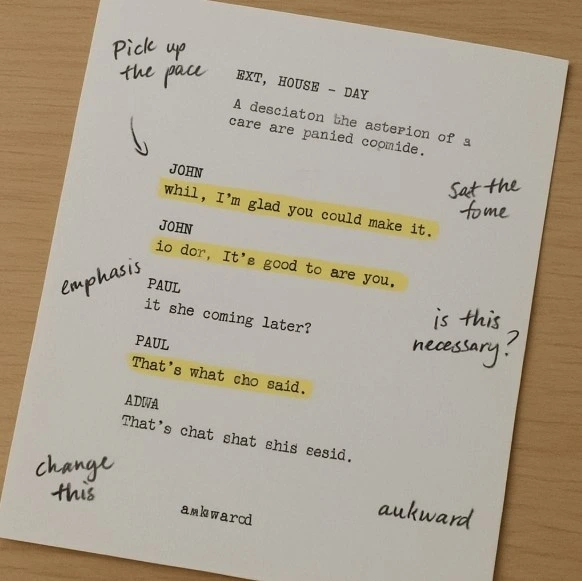 Pick up
the pace
EXT, HOUSE - DAY
A desciaton the asterion of a
care are panied copmide.
JOHN
whil, I'm glad you could make it.
Sat the
tome
JOHN
io dor, It's good to are you.
emphasis
PAUL
it she coming later?
is this
necessary?
PAUL
That's what cho said.
ADWA
That's chat shat shis sesid.
change
this
amkwarod
aukward